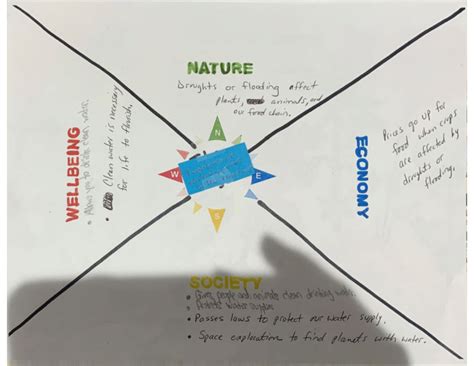 NATURE
Droughts or flooding affect
plants, animals, and
our food chain.
WELLBEING
• Allows you to drink clean water.
• Clean water is necessary
for life to flourish.
N
W
E
S
ECONOMY
Prices go up for
food when crops
are affected by
droughts or
flooding.
SOCIETY
• Gives people and animals clean drinking water.
• Protects water supplies
• Passes laws to protect our water supply.
• Space exploration to find planets with water.